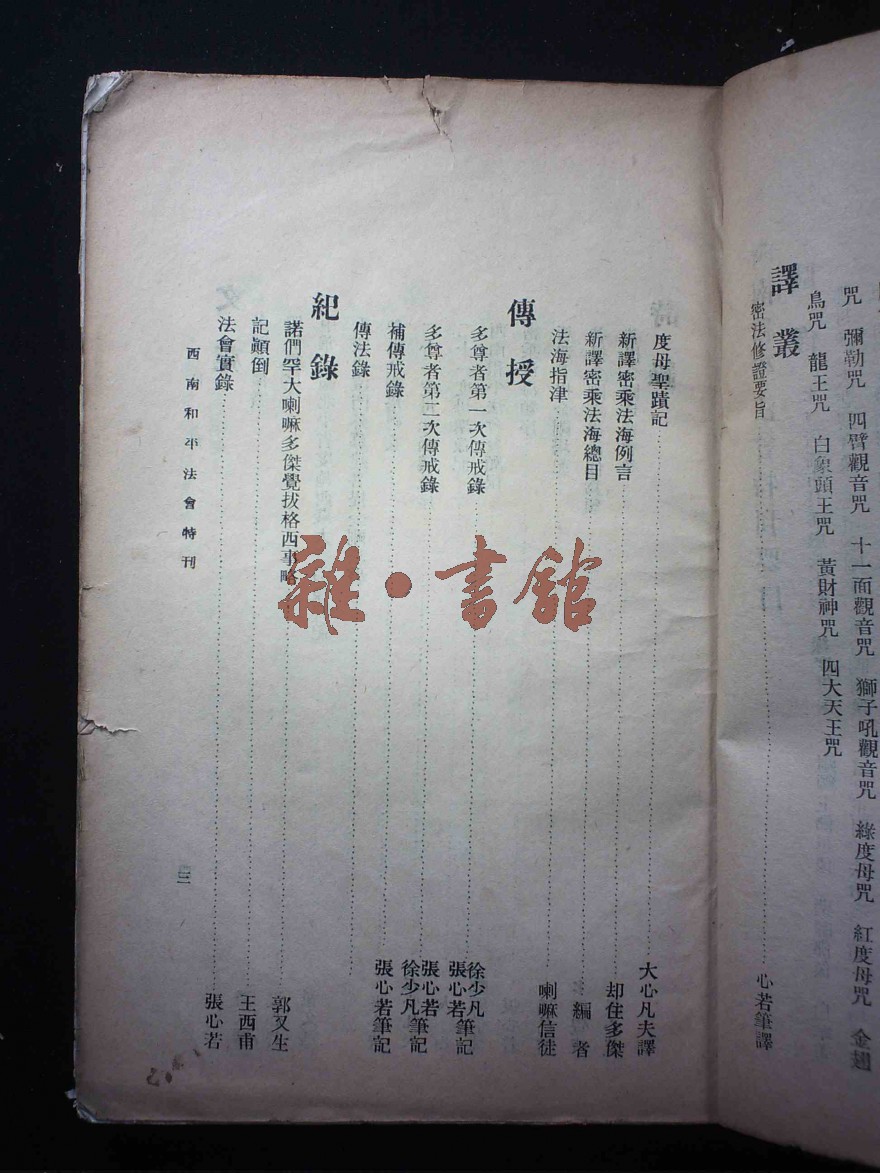 咒　彌勒咒　四臂觀音咒　十一面觀音咒　獅子吼觀音咒　綠度母咒　紅度母咒　金翅
鳥咒　龍王咒　白象頭王咒　黃財神咒　四大天王咒
譯叢
密法修證要旨……心若筆譯
度母聖蹟記……大心凡夫譯
新譯密乘法海例言……却住多傑
新譯密乘法海總目……編者
法海指津……喇嘛信徒
傳授
多尊者第一次傳戒錄……徐少凡張心若筆記
多尊者第二次傳戒錄……張心若徐少凡筆記
補傳戒錄……張心若筆記
傳法錄……
紀錄
諾們罕大喇嘛多傑覺拔格西事略……郭又生
記顚倒……王西甫
法會實錄……張心若
西南和平法會特刊
三
雜·書館